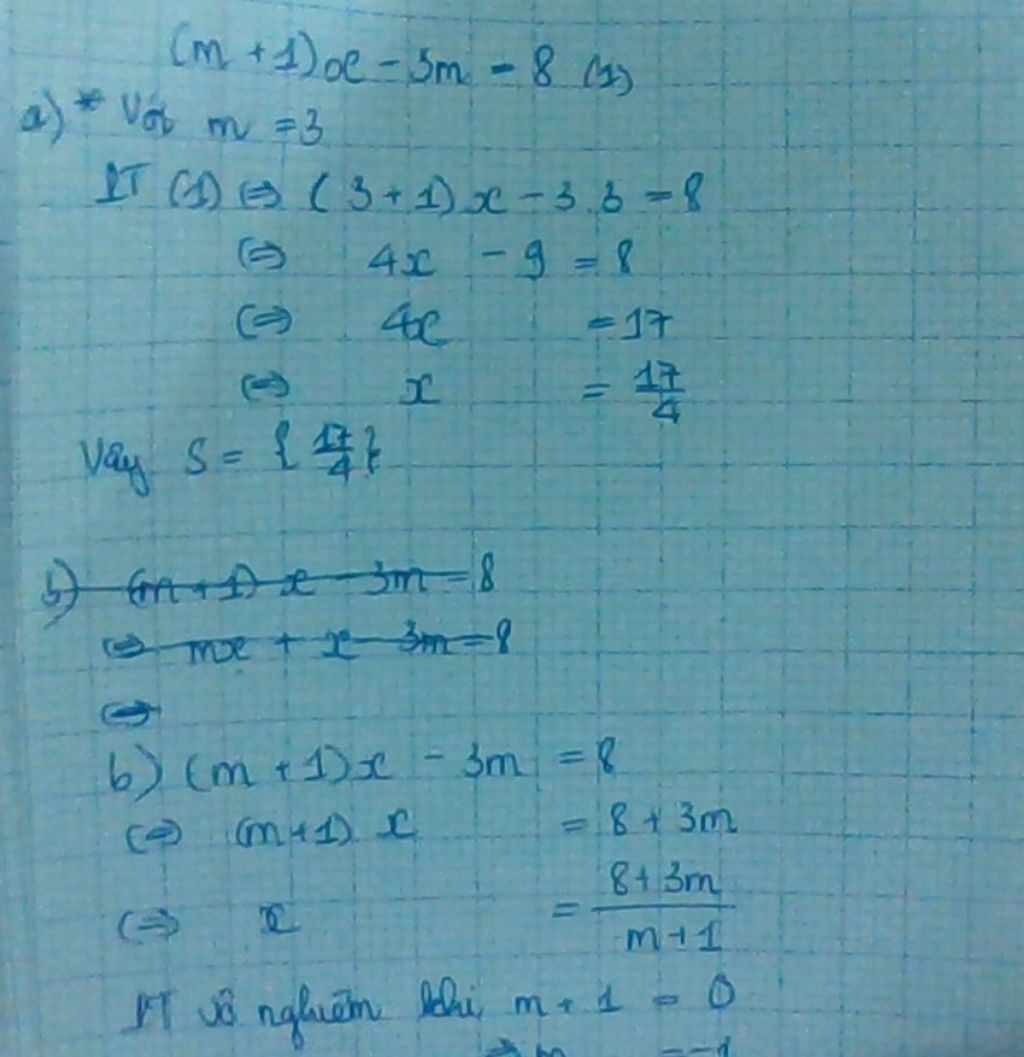 (m + 1)x - 3m = 8 (1)
a) * Với m = 3
PT (1) ⇔ (3 + 1)x - 3.3 = 8
⇔ 4x - 9 = 8
⇔ 4x = 17
⇔ x = 17/4
Vậy S = {17/4}
b) (m + 1)x - 3m = 8
⇔ mx + x - 3m = 8
⇔
b) (m + 1)x - 3m = 8
⇔ (m+1) x = 8 + 3m
⇔ x = (8 + 3m)/(m + 1)
PT vô nghiệm khi m + 1 = 0
⇒ m = -1